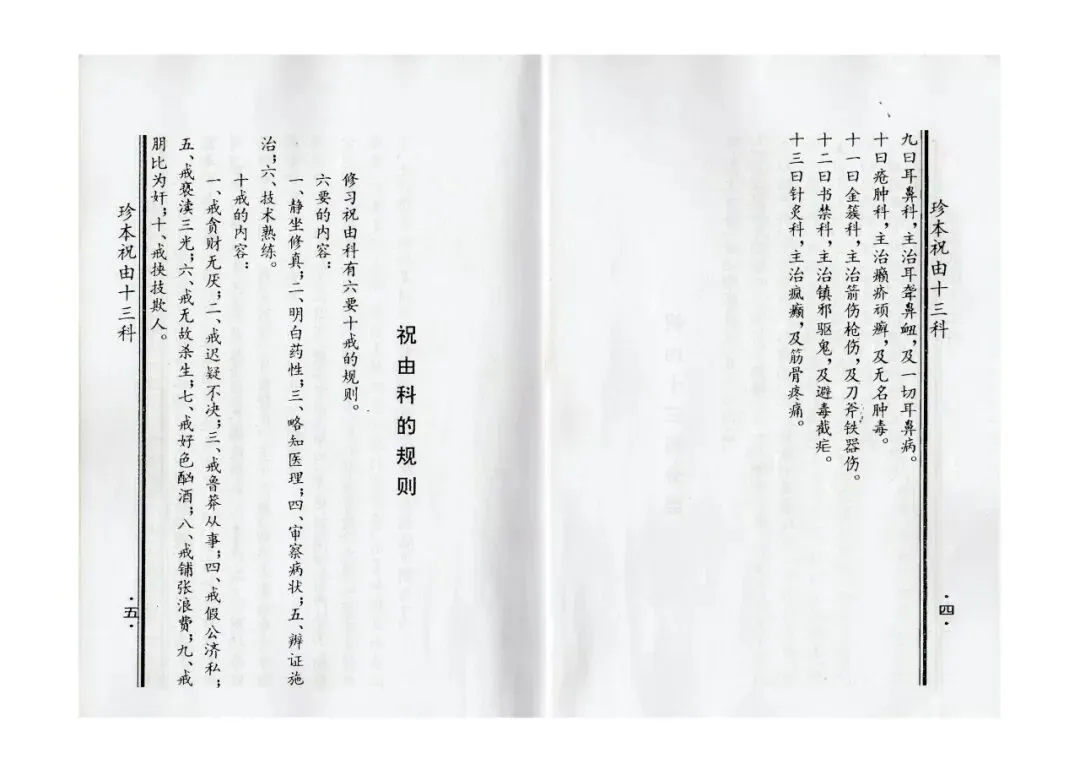 珍本祝由十三科
九曰耳鼻科，主治耳聋鼻衄，及一切耳鼻病。
十曰疮肿科，主治癞疥顽癣，及无名肿毒。
十一曰金簇科，主治箭伤枪伤，及刀斧铁器伤。
十二曰书禁科，主治镇邪驱鬼，及避毒截疟。
十三曰针灸科，主治疯癫，及筋骨疼痛。
·四·
祝由科的规则
修习祝由科有六要十戒的规则。
六要的内容：
一、静坐修真；二、明白药性；三、略知医理；四、审察病状；五、辨证施
治；六、技术熟练。
十戒的内容：
一、戒贪财无厌；二、戒迟疑不决；三、戒鲁莽从事；四、戒假公济私；
五、戒亵渎三光；六、戒无故杀生；七、戒好色酗酒；八、戒铺张浪费；九、戒
朋比为奸；十、戒挟技欺人。
珍本祝由十三科
·五·